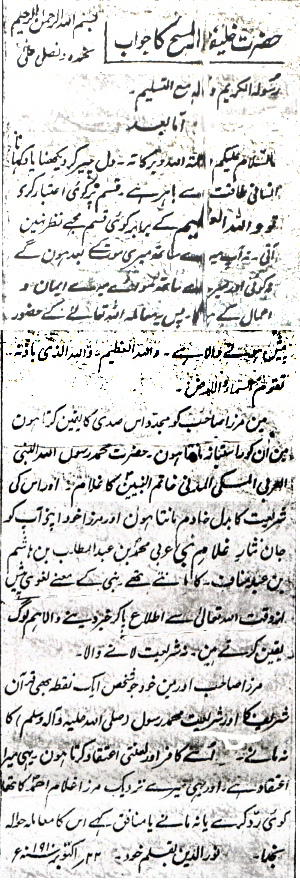 بسم اللہ الرحمن الرحیم
نحمدہ و نصلی علیٰ
حضرت خلیفۃ المسیح کا جواب
رسولہ الکریم و آلہ مع التسلیم۔
اما بعد
السلام علیکم و رحمۃ اللہ و برکاتہ۔ دل چیر کر دیکھنا یا دکھانا
انسانی طاقت سے باہر ہے۔ قسم پر کوئی اعتبار کرے
تو واللہ العظیم کے برابر کوئی قسم مجھے نظر نہیں
آتی۔ نہ آپ میرے ساتھ میری موت کے بعد ہوں گے
نہ کوئی اور میرے ساتھ سوائے میرے ایمان و
اعمال کے ہوگا۔ پس یہ معاملہ اللہ تعالیٰ کے حضور
پیش ہونے والا ہے۔ واللہ العظیم۔ واللہ الذی باذنہ
تقوم السماء والارض۔
میں مرزا صاحب کو مجدد اس صدی کا یقین کرتا ہوں
میں ان کو راستباز مانتا ہوں۔ حضرت محمد رسول اللہ النبی
العربی المکی المدنی خاتم النبیین کا غلام۔ اور اس کی
شریعت کا بدل خادم مانتا ہوں اور مرزا خود اپنے آپ کو
جان نثار غلام نبی عربی محمد بن عبد المطلب بن ہاشم
بن عبد مناف۔ کا مانتے تھے۔ نبی کے معنے لغوی پیش
از وقت اللہ تعالیٰ سے اطلاع پا کر خبر دینے والا ہم لوگ
یقین کرتے ہیں۔ نہ شریعت لانے والا۔
مرزا صاحب اور میں خود جو شخص ایک نقطہ بھی قرآن
شریف کا اور شریعت محمد رسول (صلی اللہ علیہ و آلہ وسلم) کا
نہ مانے۔ اسے کافر اور لعنتی اعتقاد کرتا ہوں۔ یہی میرا
اعتقاد ہے۔ اور یہی میرے نزدیک مرزا غلام احمد کا تھا
کوئی رد کرے یا نہ مانے یا منافق کہے اس کا معاملہ حوالہ
بخدا۔ نور الدین بقلم خود۔ ۲۲ اکتوبر ۱۹۱۰ء